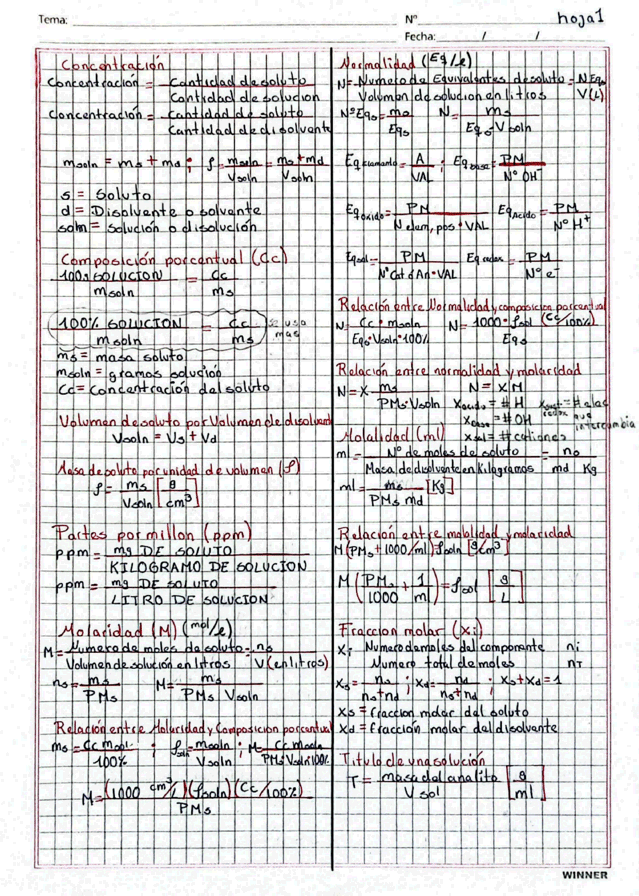 Tema:
N° hoja1
Fecha: / /
Concentración
Concentración = Cantidad de soluto
Cantidad de solución
Concentración = cantidad de soluto
Cantidad de disolvente
msoln = ms + md ; ρ = msoln = ms + md
Vsoln Vsoln
s = Soluto
d = Disolvente o solvente
soln = solución o disolución
Composición porcentual (Cc)
100% SOLUCION = Cc
msoln ms
100% SOLUCION = Cc se usa
msoln ms mas
ms = masa soluto
msoln = gramos solución
Cc = Concentración del soluto
Volumen de soluto por Volumen de disolvent
Vsoln = Vs + Vd
Masa de soluto por unidad de volumen (ρ)
ρ = ms [ g ]
Vsoln cm³
Partes por millon (ppm)
ppm = mg DE SOLUTO
KILOGRAMO DE SOLUCION
ppm = mg DE SOLUTO
LITRO DE SOLUCION
Molaridad (M) (mol/l)
M = Numero de moles de soluto = ns
Volumen de solución en litros V(en litros)
ns = ms ; M = ms
PMs PMs Vsoln
Relación entre Molaridad y Composicion porcentual
ms = Cc msol. ; ρsoln = msoln ; M = Cc msoln
100% Vsoln PMs Vsoln 100%
M = (1000 cm³/l)(ρsoln)(Cc/100%)
PMs
Normalidad (Eq/l)
N = Numero de Equivalentes de soluto = N Eqs
Volumen de solucion en litros V(L)
N°Eqs = ms N = ms
Eqs Eqs·Vsoln
Eq elemento = A ; Eq base = PM
VAL N° OH⁻
Eq oxido = PM Eq Acido = PM
N elem, pos·VAL N° H⁺
Eqsal = PM Eq redox = PM
N°Cat ó An·VAL N° e⁻
Relación entre Normalidad y composicion porcentual
N = Cc · msoln N = 1000·ρsol (Cc/100%)
Eqs·Vsoln·100% Eqs
Relación entre normalidad y molaridad
N = X ms N = X M
PMs·Vsoln Xacido = #H Xsust redox = #elec que intercambia
Xbase = #OH
Xsal = #cationes
Molalidad (ml)
ml = N° de moles de soluto = ns
Masa de disolvente en kilogramos md Kg
ml = ms [Kg]
PMs md
Relación entre molalidad y molaridad
M(PMs + 1000/ml) = ρsoln [g/cm³]
M(PMs + 1) = ρsol [ g ]
1000 ml L
Fraccion molar (Xi)
Xi Numero de moles del componente ni
Numero total de moles nT
Xs = ns ; Xd = nd ; Xs + Xd = 1
ns+nd ns+nd
Xs = fraccion molar del soluto
Xd = fracción molar del disolvente
Titulo de una solución
T = masa del analito [ g ]
V sol ml
WINNER